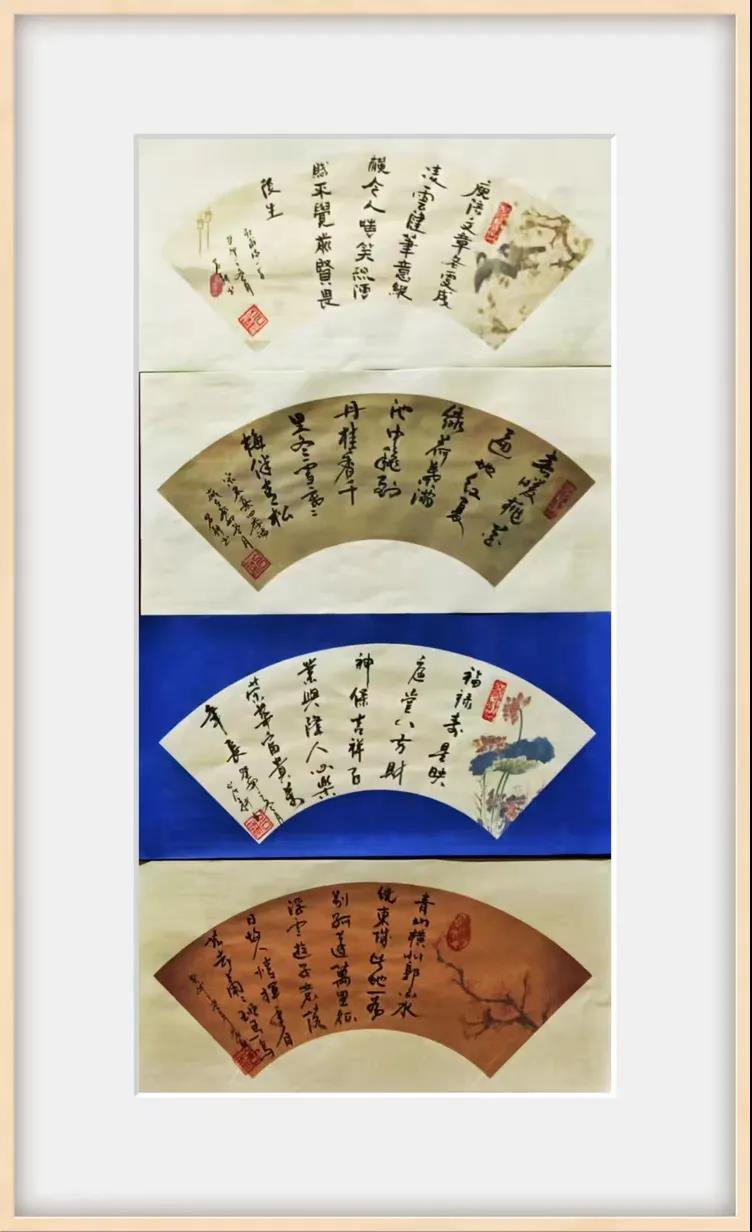 庾信文章老更成
凌雲健筆意縱
橫今人嗤笑流傳
賦不覺前賢畏
後生
春暖桃花
遍地红夏
绿荷葉满
池中穐到
丹桂香千
里冬雪
梅伴青松
福禄寿星映
庭堂八方財
神保吉祥百
業興隆人心樂
荣華富貴萬
年長
癸卯之冬月
青山横北郭白水
绕東城此地一為
别孤蓬萬里征
浮雲遊子意落
日故人情揮手自
兹去萧〻班马鳴